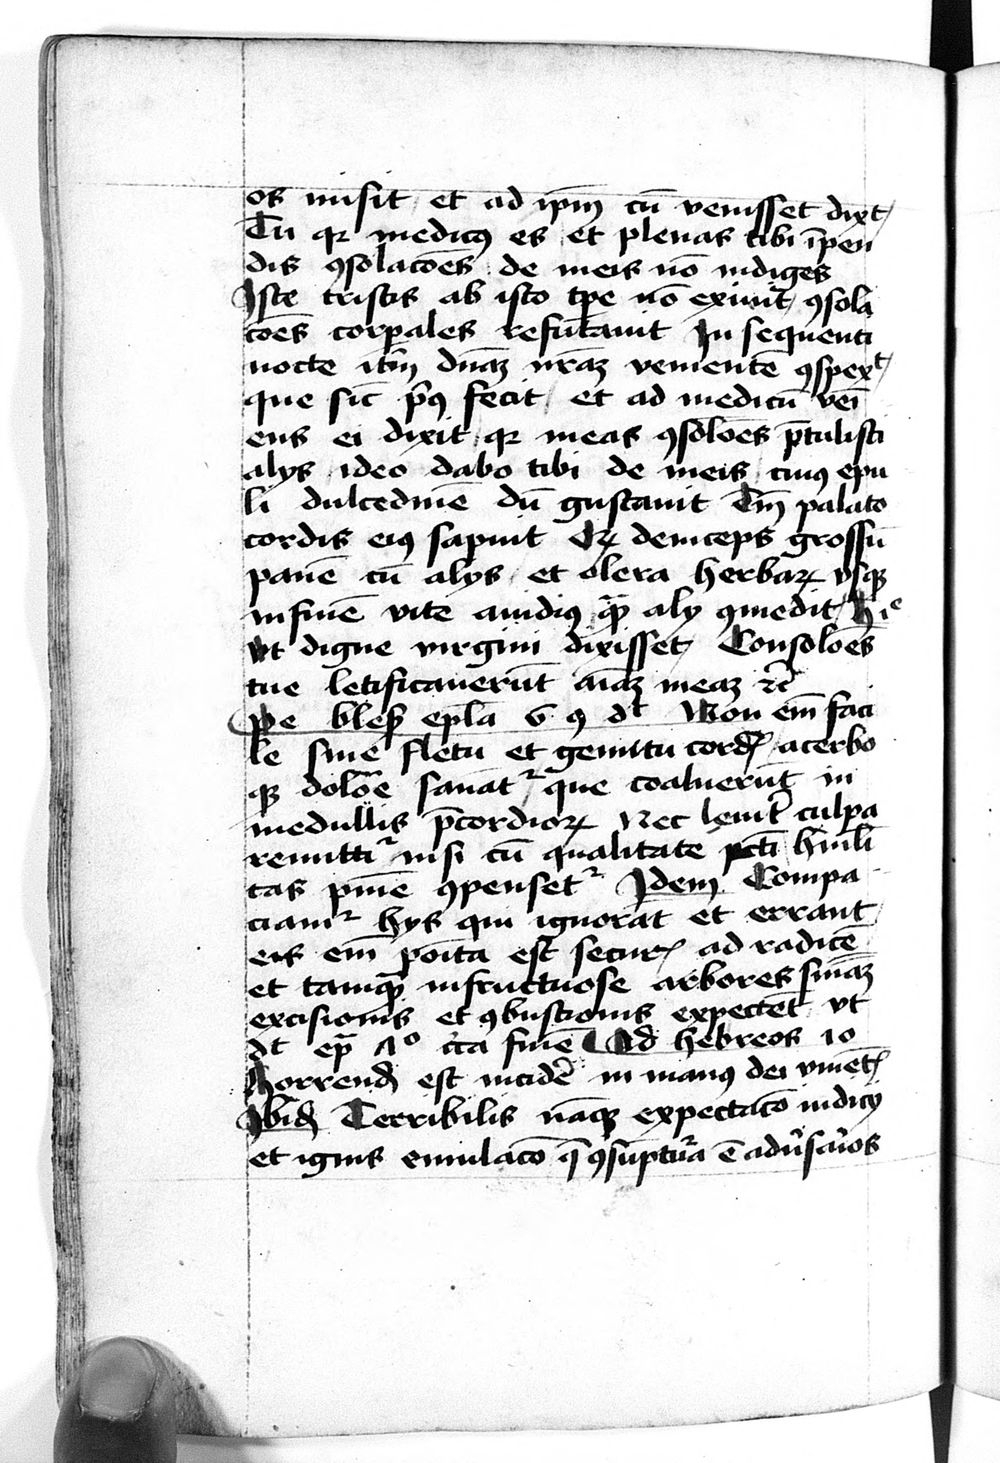 os misit / et ad ip̄m cū venisset dixt /
Tu qꝛ medicꝰ es et plenas tibi īpen
dis ꝯsolacōes de meis nō indiges
Iste tristis ab isto tp̄e nō exiuit / ꝯsola
cōes corꝑales refutauit In sequenti
nocte itm̄ dn̄aꝫ nr̄aꝫ venientē ꝯspexᵗ /
que sic̄ pͥꝰ fecit / et ad medicū vei
ens ei dixit qꝛ meas ꝯsolōes p̄tulisti
alijs ideo dabo tibi de meis cuiꝰ epu
li dulcedinē dū gustauit tm̄ palato
cordis eiꝰ sapuit qꝫ deinceps grossū
panē cū alijs / et olera herbaꝝ vsqꝫ
in finē vite auidiꝰ qͣꝫ alij ꝯmedit / hic
vt digne virgini dixisset / Consolōes
tue letificauerūt aīaꝫ meaꝫ ꝛc̄
Pe bles̄ epl̄a 6 9 dᵗ Non em̄ faci
le sine fletu et gemitu cord̄ acerbo
qꝫ dolōe sanatᷣ / que coaluerūt in
medullis p̄cordioꝝ Nec leuiṫ culpa
remittiᷣ nisi cū qualitate pc̄ti humili
tas pn̄ie ꝯpensetᷣ Idem Compa
ciamᷣ hijs qui ignorāt et errant /
eis em̄ poīta est secur̄ ad radicē
et tamqͣꝫ infructuose arbores sn̄iaꝫ
excisionis et ꝯbustionis expectēt vt
dᵗ ep̄a 10 cͥca finē Ad hebreos 10
Horrend̄ est incidē in manꝰ dei viuēt̄
Ibid̄ Terribilis nāqꝫ expectacō iudicij
et ignis emulacō q̄ ꝯsūptūa ē adūsaūos